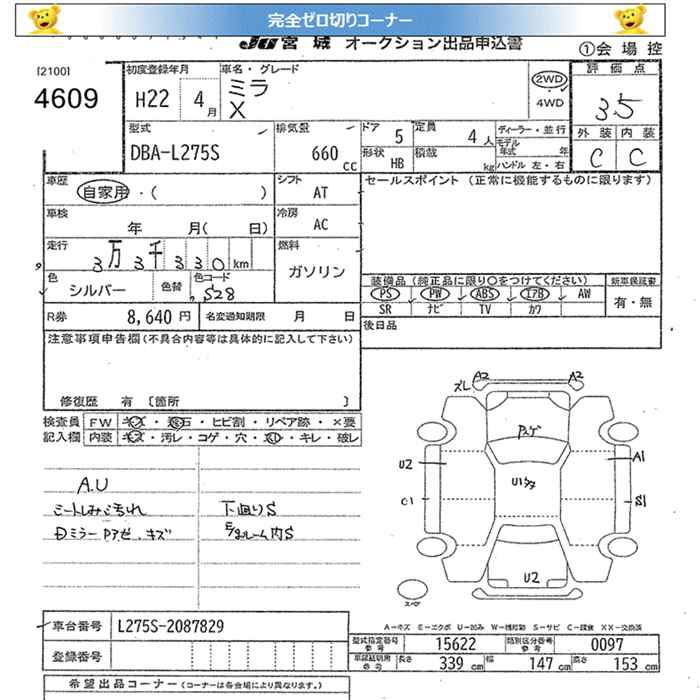 完全ゼロ切りコーナー
JU 宮城 オークション出品申込書
①会場控
[2100]
4609
初度登録年月 H22 4月
車名・グレード ミラ X
2WD 4WD
評価点 3.5
外装 内装
C C
型式 DBA-L275S
排気量 660 cc
ドア 5
形状 HB
定員 4人
積載 kg
ディーラー・並行
モデル年式 年
ハンドル 左・右
車歴 自家用・( )
シフト AT
セールスポイント (正常に機能するものに限ります)
車検 年 月( 日)
冷房 AC
走行 3万3千330km
燃料 ガソリン
色 シルバー 色替 色コード S28
装備品 (純正品に限り○をつけてください)
新車保証書
PS PW ABS エアB AW
有・無
SR ナビ TV カワ
R券 8,640円 名変通知期限 月 日
後日品
注意事項申告欄 (不具合内容等は具体的に記入して下さい)
修復歴 有 〔箇所 〕
検査員 FW キズ・飛石・ヒビ割・リペア跡・×要
記入欄 内装 キズ・汚レ・コゲ・穴・スレ・キレ・破レ
A2 A2
ズレ
U2
A1
C1
S1
U2
A.U
シートしみ汚れ
下廻りS
Dミラー Pアゼ・キズ
E/gルーム内S
スペア
A-キズ E-エクボ U-凹み W-補修跡 S-サビ C-腐食 XX-交換済
車台番号 L275S-2087829
型式指定番号 参考 15622 類別区分番号 参考 0097
登録番号
車両認証用 参考 長さ 339 cm 幅 147 cm 高さ 153 cm
希望出品コーナー (コーナーは各会場により異なります。)